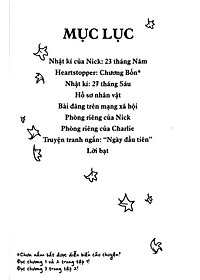 MỤC LỤC
Nhật kí của Nick: 23 tháng Năm
Heartstopper: Chương Bốn*
Nhật kí: 27 tháng Sáu
Hồ sơ nhân vật
Bài đăng trên mạng xã hội
Phòng riêng của Nick
Phòng riêng của Charlie
Truyện tranh ngắn: "Ngày đầu tiên"
Lời bạt
*Chưa nắm bắt được diễn biến câu chuyện?
Đọc chương 1 và 2 trong tập 1!
Đọc chương 3 trong tập 2!